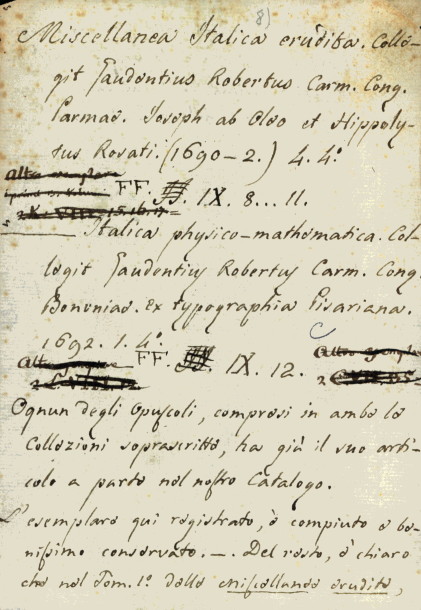 8)
Miscellanea Italica erudita. Colle-
git Gaudentius Robertus Carm. Cong.
Parmae. Joseph ab Oleo et Hippoly-
tus Rosati. (1690-2.) 4. 4°.
FF. IX. 8... 11.
Italica physico-mathematica. Col-
legit Gaudentius Robertus Carm. Cong.
Bononiae. Ex typographia Pisariana.
1692. 1. 4°.
FF. IX. 12.
Ognun degli Opuscoli, compresi in ambe le
Collezioni soprascritte, ha già il suo arti-
colo a parte nel nostro Catalogo.
L'esemplare qui registrato, è compiuto e be-
nissimo conservato. —. Del resto, è chiaro
che nel Tom. 1°. delle Miscellanee erudite,